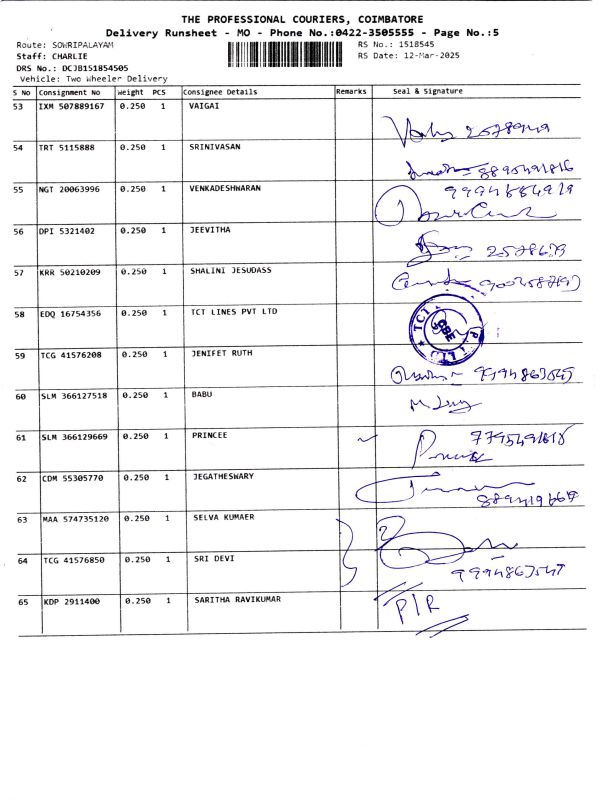 THE PROFESSIONAL COURIERS, COIMBATORE
Delivery Runsheet - MO - Phone No.:0422-3505555 - Page No.:5
Route: SOWRIPALAYAM
RS No.: 1518545
Staff: CHARLIE
RS Date: 12-Mar-2025
DRS No.: DCJB151854505
Vehicle: Two Wheeler Delivery
S No Consignment No Weight PCS Consignee Details Remarks Seal & Signature
53 IXM 507889167 0.250 1 VAIGAI
54 TRT 5115888 0.250 1 SRINIVASAN
55 NGT 20063996 0.250 1 VENKADESHNARAN
56 DPI 5321402 0.250 1 JEEVITHA
57 KRR 50210209 0.250 1 SHALINI JESUDASS
58 EDQ 16754356 0.250 1 TCT LINES PVT LTD
TCT CBE LTD
59 TCG 41576208 0.250 1 JENIFET RUTH
60 SLM 366127518 0.250 1 BABU
61 SLM 366129669 0.250 1 PRINCEE
62 CDM 55305770 0.250 1 JEGATHESWARY
63 MAA 574735120 0.250 1 SELVA KUMAER
64 TCG 41576850 0.250 1 SRI DEVI
9994863547
65 KDP 2911400 0.250 1 SARITHA RAVIKUMAR
P/R